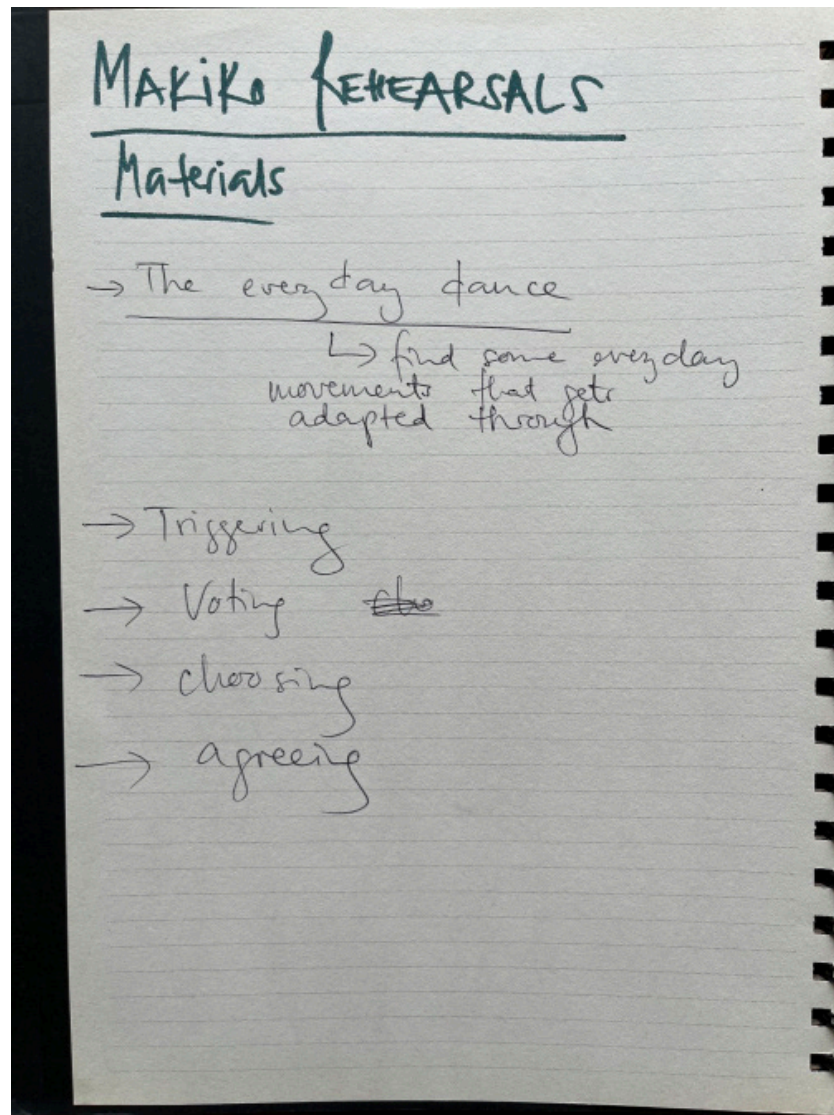 MAKiKo REHEARSALS
Materials
→ The everyday dance
↳ find some everyday
movements that gets
adapted through
→ Triggering
→ Voting
→ choosing
→ agreeing